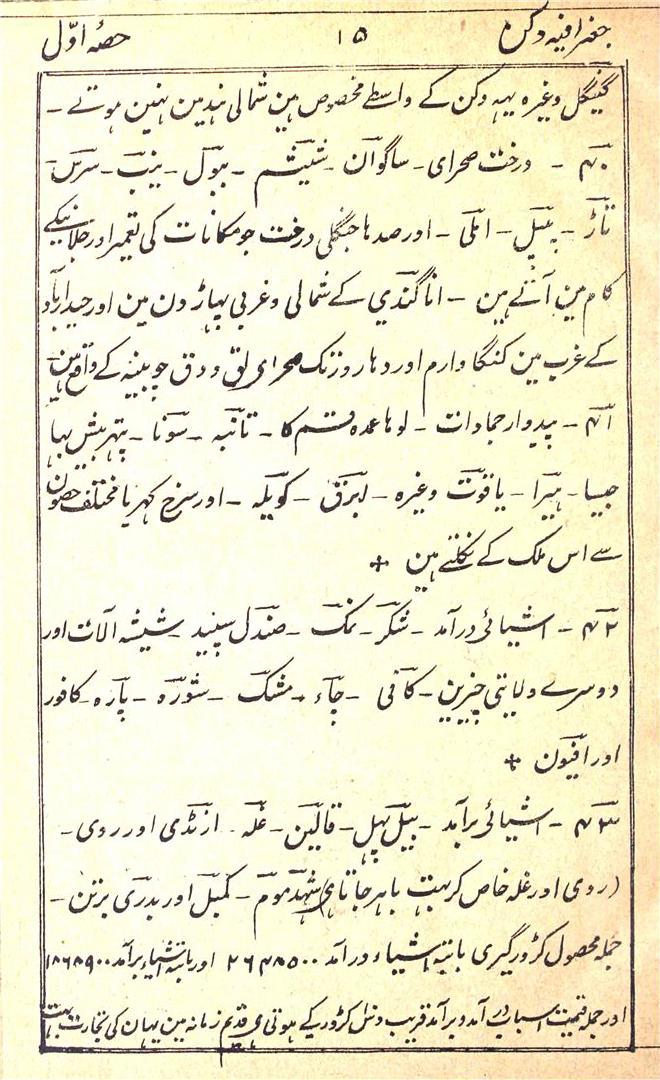 جغرافیہ دکن ۱۵ حصۂ اوّل
وغیرہ یہہ دکن کے واسطے مخصوص ہین شمالی ہند مین نہین ہوتے ۔
۴۰ ۔ درخت صحرای ۔ ساگوان ۔ شیشم ۔ ببول ۔ ۔ سرس
تاڑ ۔ پیپل ۔ املی ۔ اور صدہا جنگلی درخت جو مکانات کی تعمیر اور جلانیکے
کام مین آتے ہین ۔ اناگندی کے شمالی و غربی پہاڑون مین اور حیدرآباد
کے غرب مین کنگاوارم اور دہاروز تک صحرای لق و دق چوبینہ کے واقع ہین
۴۱ ۔ پیدوار جمادات ۔ لوہا عمدہ قسم کا ۔ تانبہ ۔ سونا ۔ پتہر بیش بہا
جیسا ۔ ہیرا ۔ یاقوت وغیرہ ۔ ابرق ۔ کویلہ ۔ اور سرخ کہریا مختلف حصون
سے اس ملک کے نکلتے ہین +
۴۲ ۔ اشیائی درآمد ۔ شکر ۔ نمک ۔ صندل سپید ۔ شیشہ آلات اور
دوسرے ولایتی چیزین ۔ کافی ۔ چاء ۔ مشک ۔ شورہ ۔ پارہ ۔ کافور
اور افیون +
۴۳ ۔ اشیائی برآمد ۔ بیل پہل ۔ قالین ۔ غلہ ۔ ارنڈی اور روی ۔
(روی اور غلہ خاص کر بہت باہر جاتا ہی) شہد موم ۔ کمبل اور بدری برتن ۔
جملہ محصول کروڑگیری بابتہ اشیاء درآمد ۲۶۳۸۵۰۰ اور بابتہ اشیاء برآمد ۱۸۶۸۹۰۰
اور جملہ قیمت اسباب درآمد و برآمد قریب دس کروڑ کے ہوتی ہی قدیم زمانہ مین یہان کی تجارت بہت